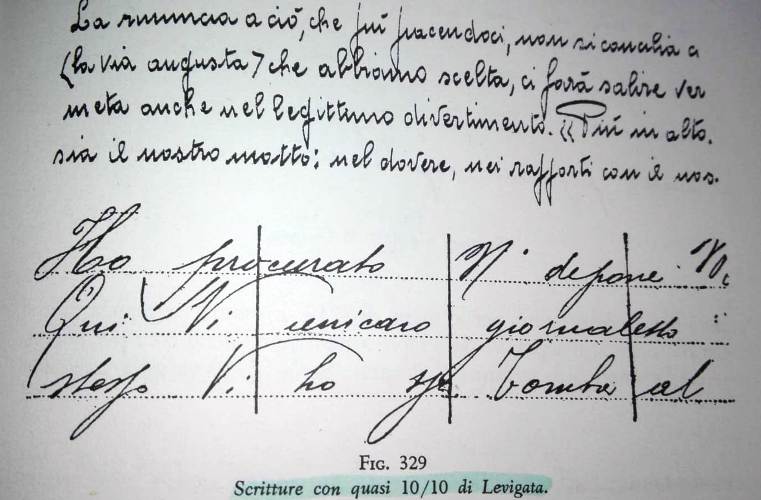 La rinuncia a ciò, che più piacendoci, non si concilia a
(la via angusta) che abbiamo scelta, ci farà salire ver
meta anche nel legittimo divertimento. « Più in alto.
sia il nostro motto: nel dovere, nei rapporti con il nos.
Ho procurato N. depone
Qui Vi unicaro giornaletto :
stesso Vi ho Tomba al
FIG. 329
Scritture con quasi 10/10 di Levigata.